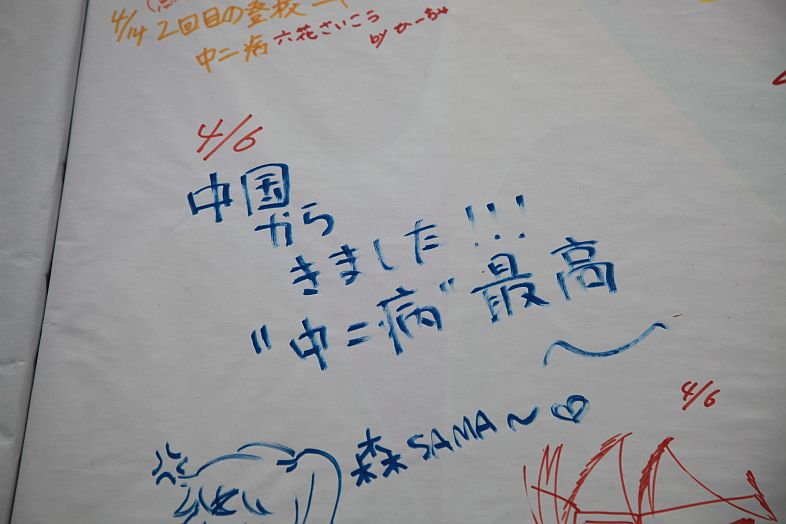 4/14 2回目の登校
中二病 六花さいこう
by ひーちゃ
4/6
中国
から
きました!!!
"中二病"最高
〜
森SAMA〜♡
4/6